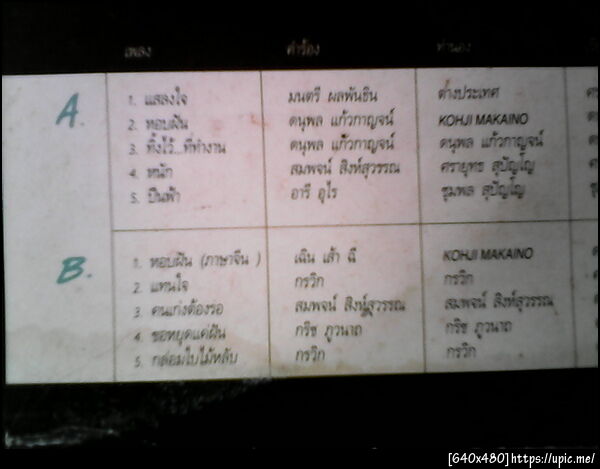 เพลง คำร้อง ทำนอง
A. 1. แสลงใจ มนตรี ผลพันธิน ต่างประเทศ
2. หอบฝัน ดนุพล แก้วกาญจน์ KOHJI MAKAINO
3. ทิ้งไว้...ที่ทำงาน ดนุพล แก้วกาญจน์ ดนุพล แก้วกาญจน์
4. หนัก สมพจน์ สิงห์สุวรรณ ศรายุทธ สุปัญโญ
5. ปีนฟ้า อารี อุไร ชุมพล สุปัญโญ
B. 1. หอบฝัน (ภาษาจีน ) เฉิน เส้า ฉี KOHJI MAKAINO
2. แทนใจ กรวิก กรวิก
3. คนเก่งต้องรอ สมพจน์ สิงห์สุวรรณ สมพจน์ สิงห์สุวรรณ
4. ขอหยุดแค่ฝัน กริช ภูวนาถ กริช ภูวนาถ
5. กล่อมใบไม้หลับ กรวิก กรวิก
[640x480]https://upic.me/